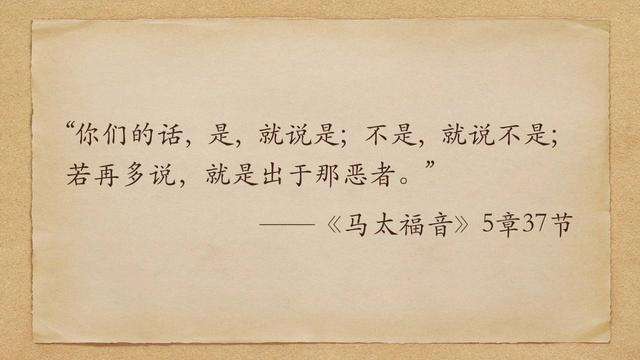 “你们的话，是，就说是；不是，就说不是；
若再多说，就是出于那恶者。”
——《马太福音》5章37节